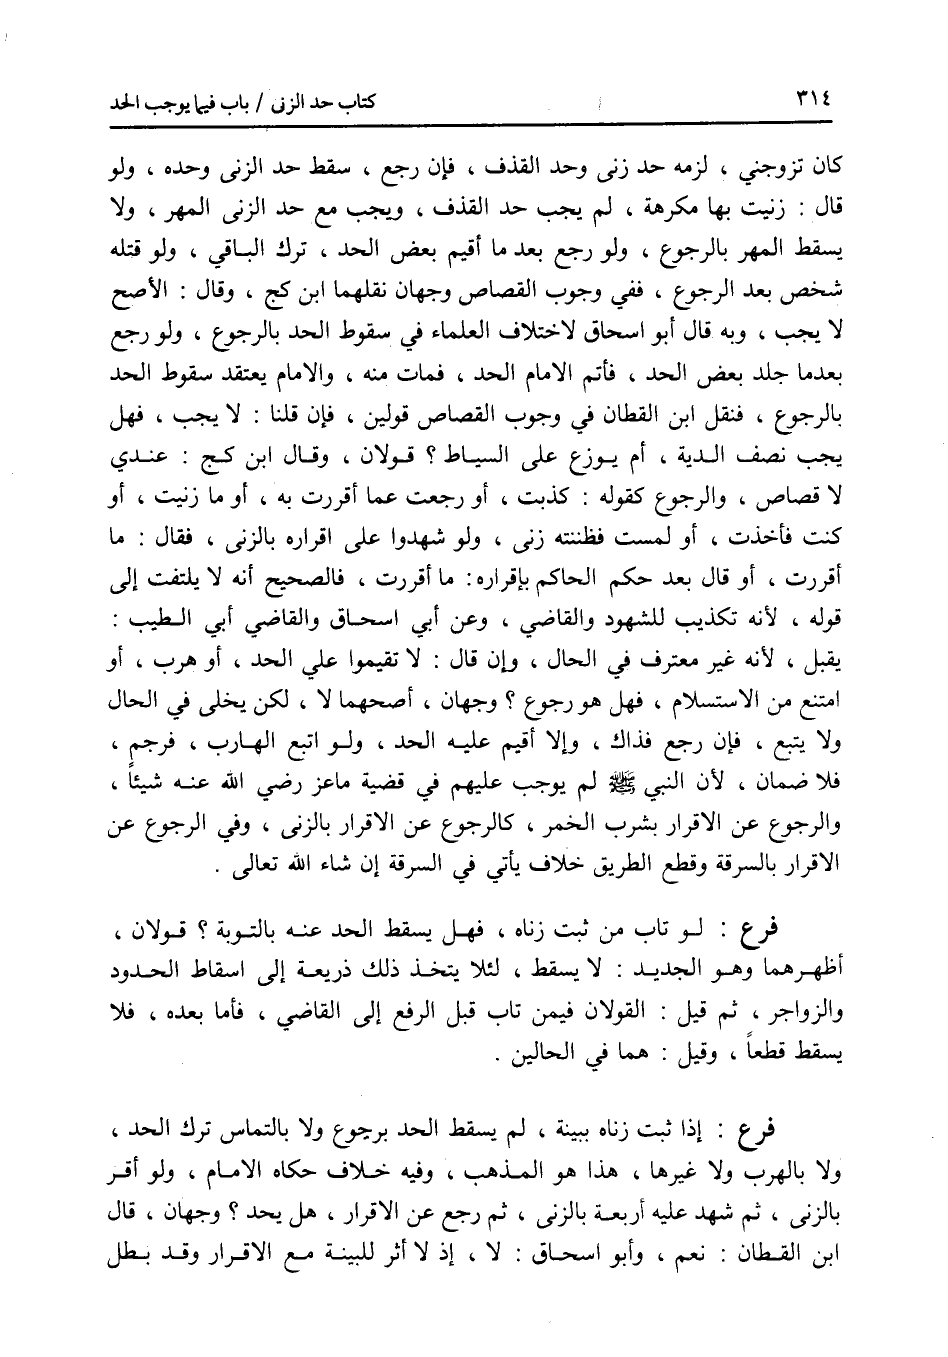 ٣١٤ كتاب حد الزنى / باب فيما يوجب الحد
كان تزوجني ، لزمه حد زنى وحد القذف ، فإن رجع ، سقط حد الزنى وحده ، ولو
قال : زنيت بها مكرهة ، لم يجب حد القذف ، ويجب مع حد الزنى المهر ، ولا
يسقط المهر بالرجوع ، ولو رجع بعد ما أقيم بعض الحد ، ترك الباقي ، ولو قتله
شخص بعد الرجوع ، ففي وجوب القصاص وجهان نقلهما ابن كج ، وقال : الأصح
لا يجب ، وبه قال أبو اسحاق لاختلاف العلماء في سقوط الحد بالرجوع ، ولو رجع
بعدما جلد بعض الحد ، فأتم الامام الحد ، فمات منه ، والامام يعتقد سقوط الحد
بالرجوع ، فنقل ابن القطان في وجوب القصاص قولين ، فإن قلنا : لا يجب ، فهل
يجب نصف الدية ، أم يوزع على السياط ؟ قولان ، وقال ابن كج : عندي
لا قصاص ، والرجوع كقوله : كذبت ، أو رجعت عما أقررت به ، أو ما زنيت ، أو
كنت فأخذت ، أو لمست فظننته زنى ، ولو شهدوا على اقراره بالزنى ، فقال : ما
أقررت ، أو قال بعد حكم الحاكم بإقراره: ما أقررت ، فالصحيح أنه لا يلتفت إلى
قوله ، لأنه تكذيب للشهود والقاضي ، وعن أبي اسحاق والقاضي أبي الطيب :
يقبل ، لأنه غير معترف في الحال ، وإن قال : لا تقيموا علي الحد ، أو هرب ، أو
امتنع من الاستسلام ، فهل هو رجوع ؟ وجهان ، أصحهما لا ، لكن يخلى في الحال
ولا يتبع ، فإن رجع فذاك ، وإلا أقيم عليه الحد ، ولو اتبع الهارب ، فرجم ،
فلا ضمان ، لأن النبي ﷺ لم يوجب عليهم في قضية ماعز رضي الله عنه شيئاً ،
والرجوع عن الاقرار بشرب الخمر ، كالرجوع عن الاقرار بالزنى ، وفي الرجوع عن
الاقرار بالسرقة وقطع الطريق خلاف يأتي في السرقة إن شاء الله تعالى .
فرع : لو تاب من ثبت زناه ، فهل يسقط الحد عنه بالتوبة ؟ قولان ،
أظهرهما وهو الجديد : لا يسقط ، لئلا يتخذ ذلك ذريعة إلى اسقاط الحدود
والزواجر ، ثم قيل : القولان فيمن تاب قبل الرفع إلى القاضي ، فأما بعده ، فلا
يسقط قطعاً ، وقيل : هما في الحالين .
فرع : إذا ثبت زناه ببينة ، لم يسقط الحد برجوع ولا بالتماس ترك الحد ،
ولا بالهرب ولا غيرها ، هذا هو المذهب ، وفيه خلاف حكاه الامام ، ولو أقر
بالزنى ، ثم شهد عليه أربعة بالزنى ، ثم رجع عن الاقرار ، هل يحد ؟ وجهان ، قال
ابن القطان : نعم ، وأبو اسحاق : لا ، إذ لا أثر للبينة مع الاقرار وقد بطل